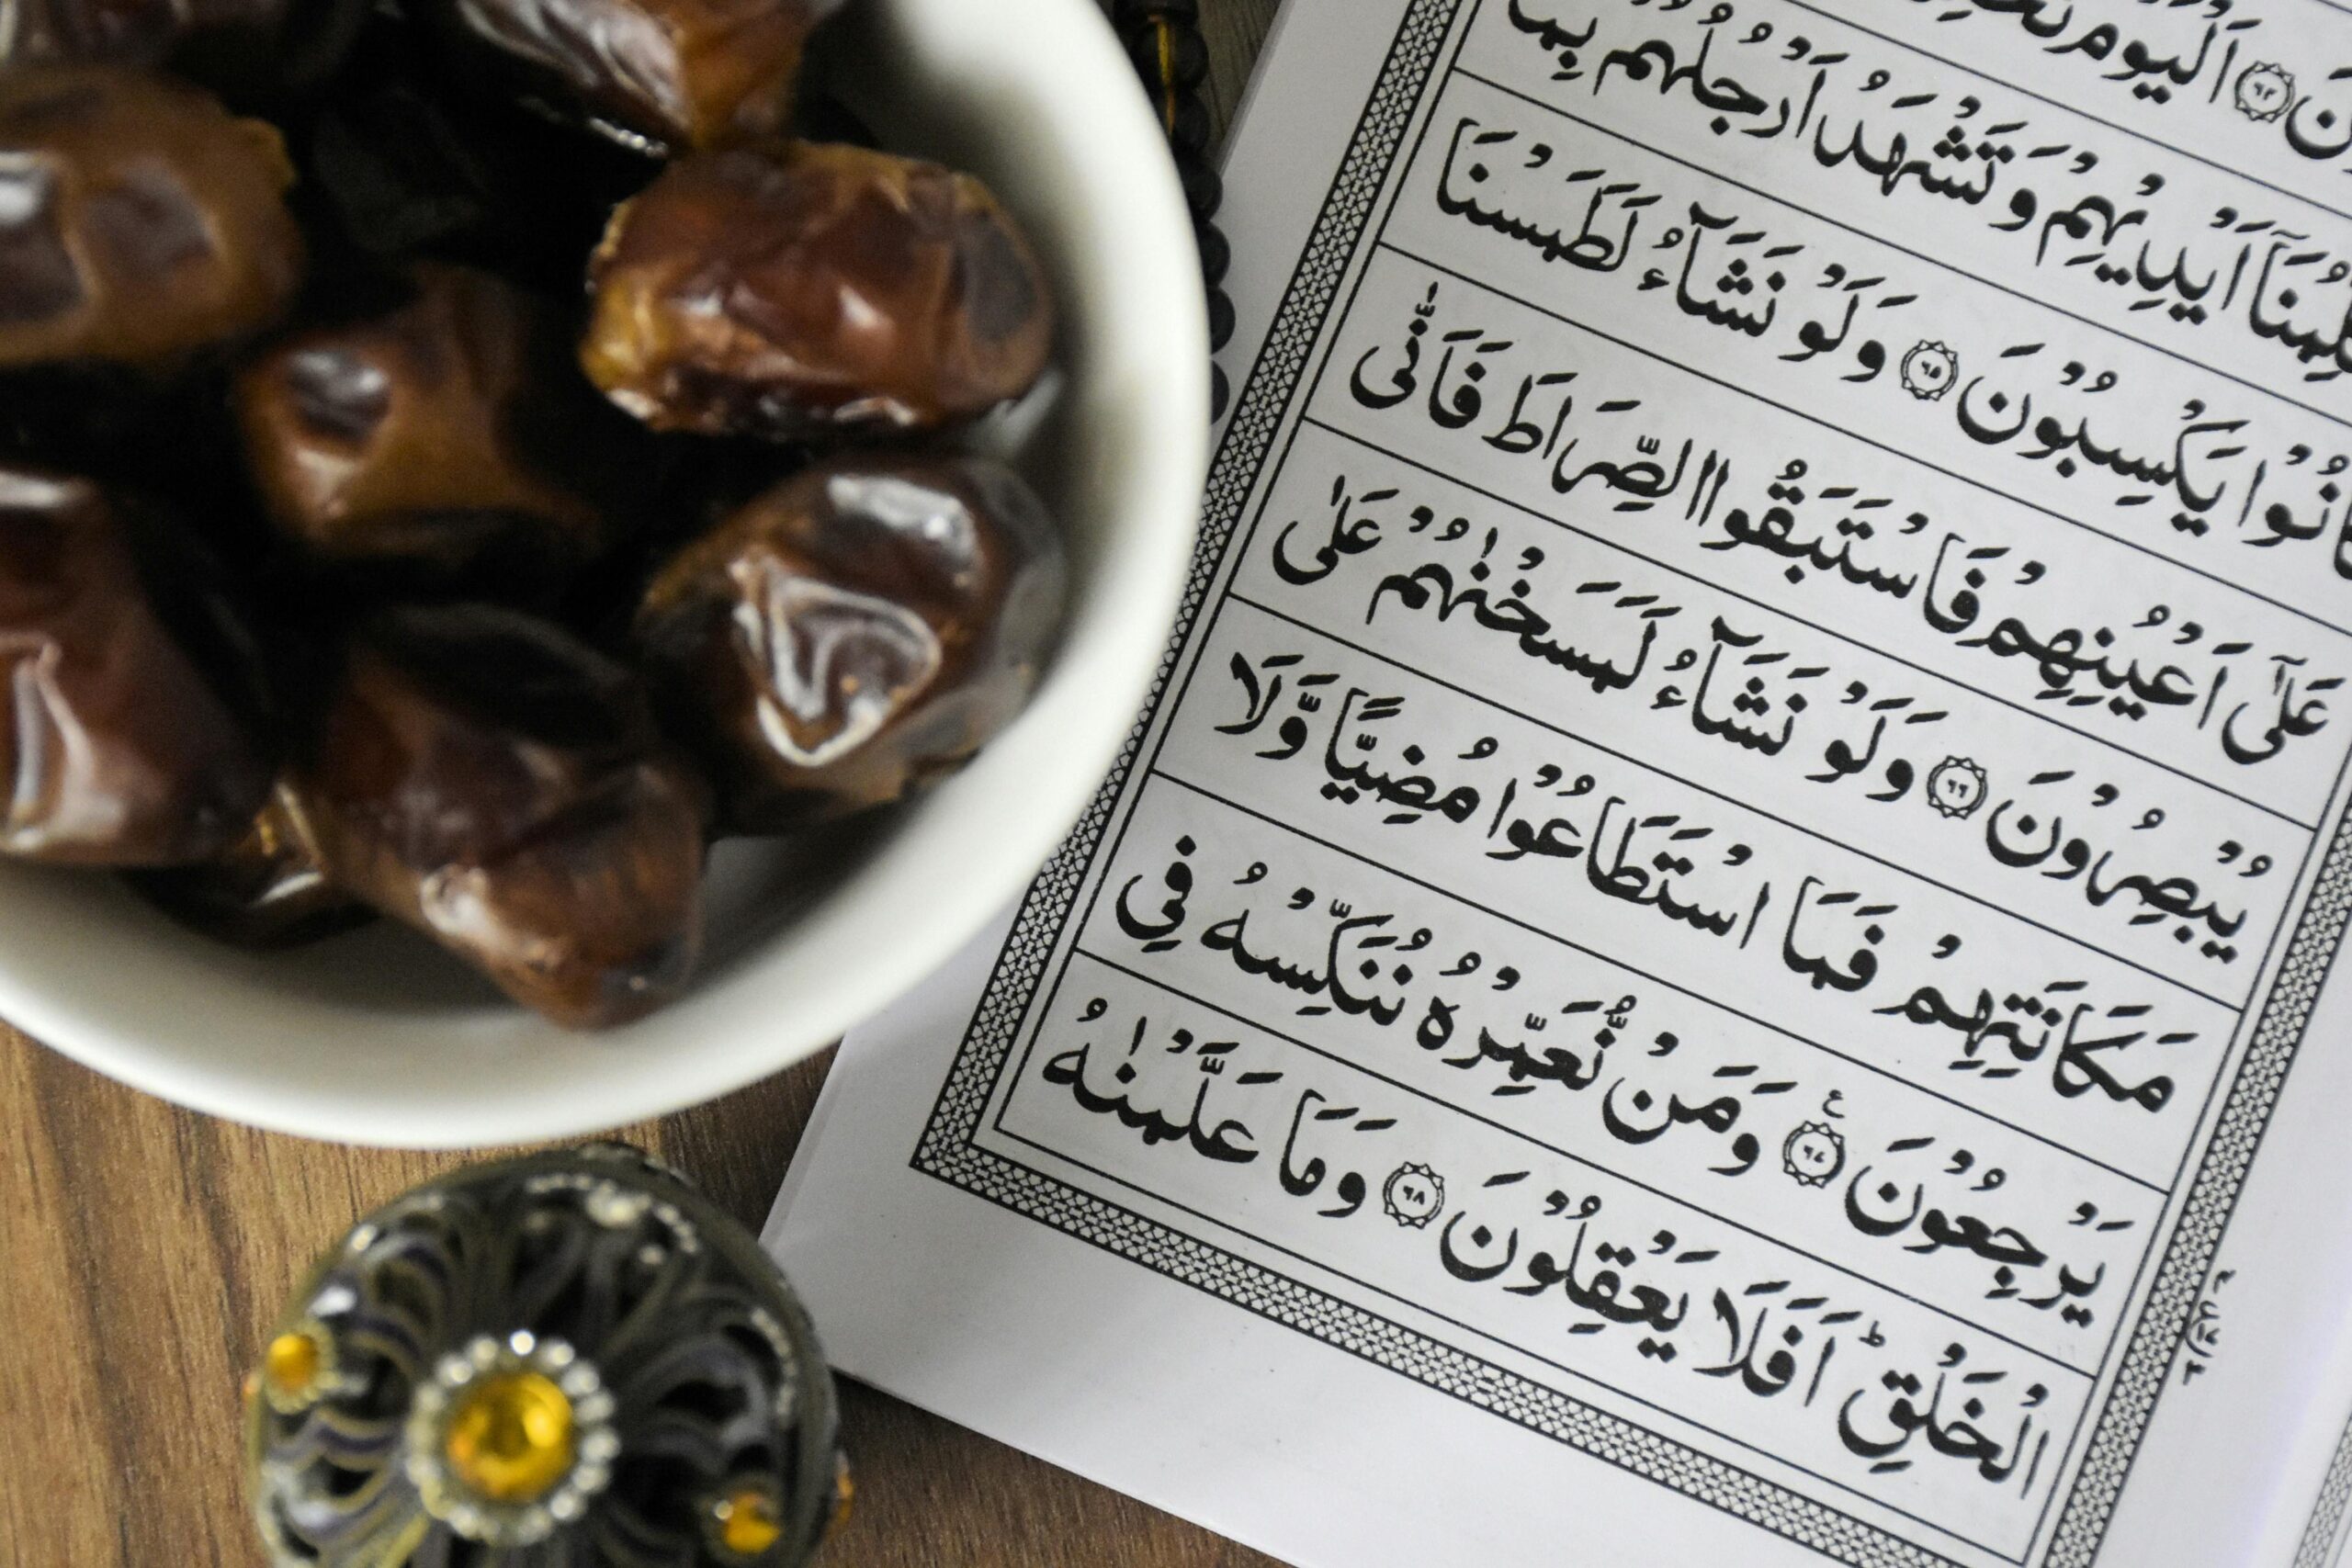 نَ ۶۴ اَلْيَوْمَ
اَيْدِيْهِمْ وَتَشْهَدُ اَرْجُلُهُمْ بِمَا
كَانُوْا يَكْسِبُوْنَ ۶۵ وَلَوْ نَشَآءُ لَطَمَسْنَا
عَلٰٓى اَعْيُنِهِمْ فَاسْتَبَقُوا الصِّرَاطَ فَاَنّٰى
يُبْصِرُوْنَ ۶۶ وَلَوْ نَشَآءُ لَمَسَخْنٰهُمْ عَلٰى
مَكَانَتِهِمْ فَمَا اسْتَطَاعُوْا مُضِيًّا وَّلَا
يَرْجِعُوْنَ ۶۷ ع وَمَنْ نُّعَمِّرْهُ نُنَكِّسْهُ فِى
الْخَلْقِ ؕ اَفَلَا يَعْقِلُوْنَ ۶۸ وَمَا عَلَّمْنٰهُ